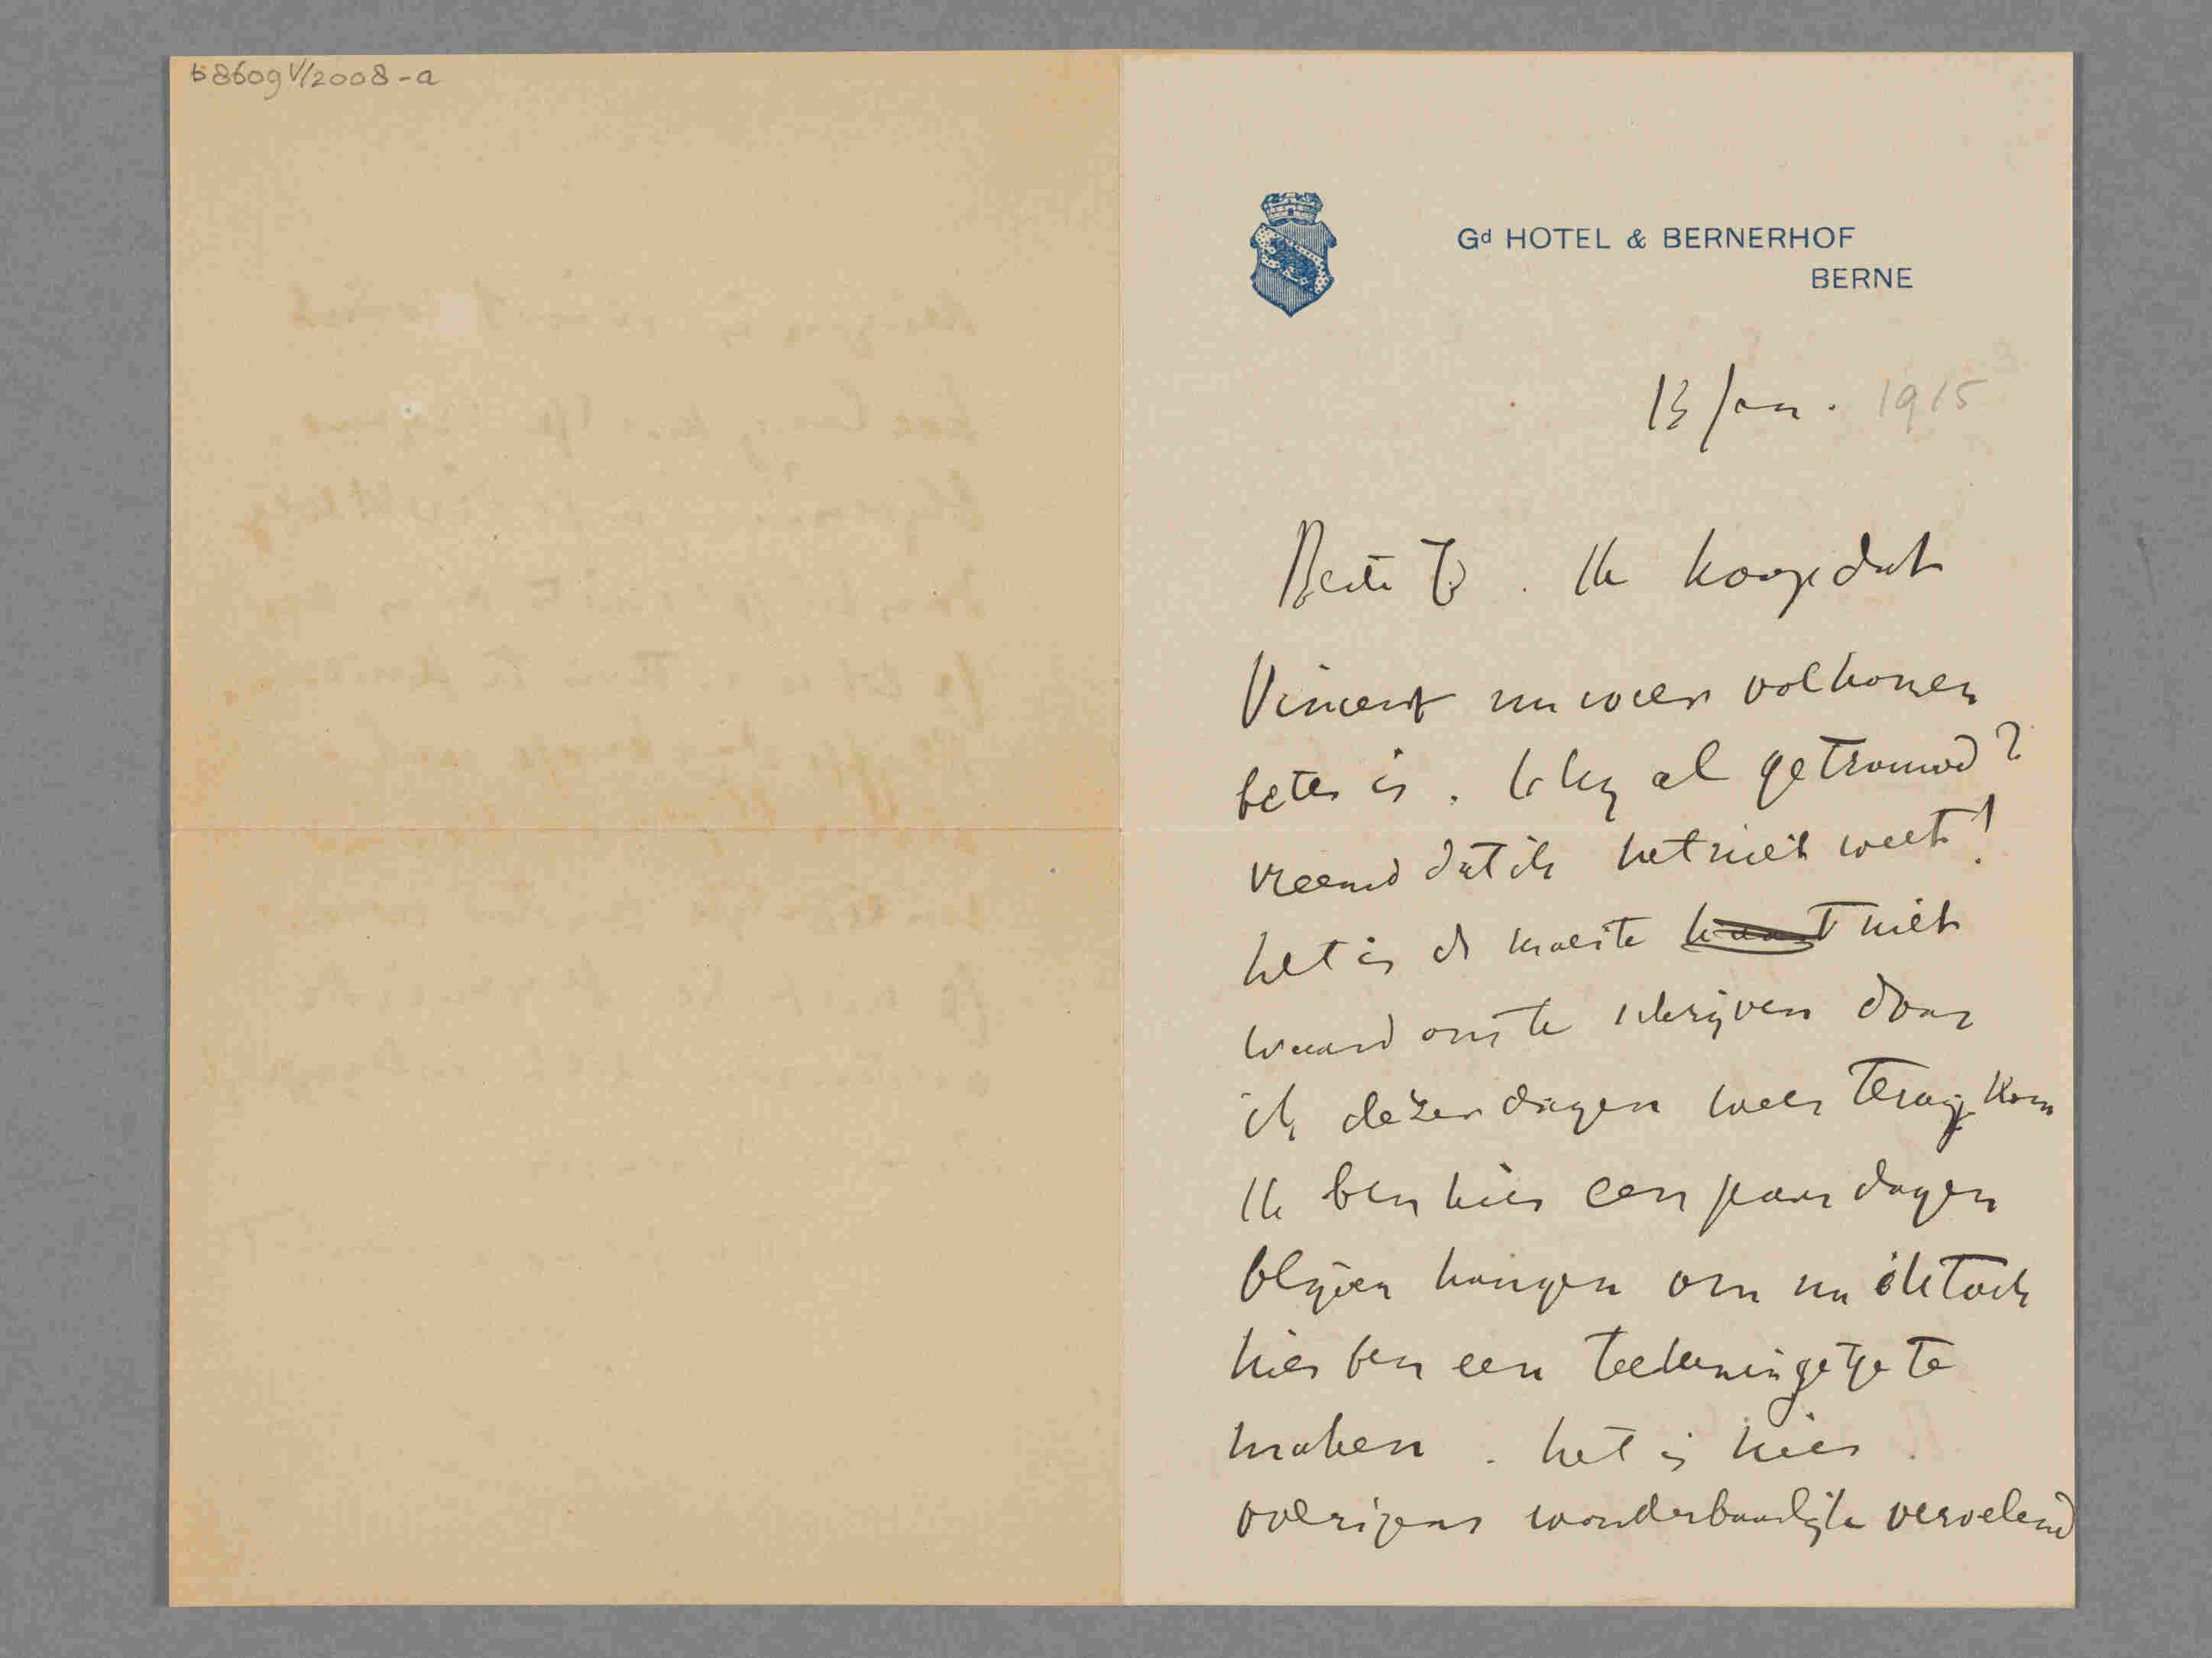 b8609 V/2008-a
Gd HOTEL & BERNERHOF
BERNE
13 Jan. 1915
Beste Jo. Ik hoop dat
Vincent nu weer volkomen
beter is. al getrouwd?
vreemd dat ik het niet weet!
het is de moeite niet
waard om te schrijven daar
ik dezer dagen weer terug kom
Ik ben hier een paar dagen
blijven hangen om nu ik toch
hier ben een teekeningetje te
maken. het is hier
overigens wonderbaarlijk vervelend